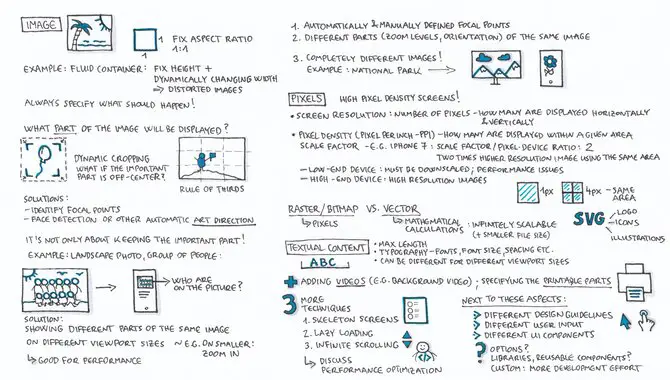 IMAGE
1
1
FIX ASPECT RATIO
1:1
EXAMPLE: FLUID CONTAINER: FIX HEIGHT +
DYNAMICALLY CHANGING WIDTH
⇒ DISTORTED IMAGES
ALWAYS SPECIFY WHAT SHOULD HAPPEN!
WHAT PART OF THE IMAGE WILL BE DISPLAYED?
DYNAMIC CROPPING
WHAT IF THE IMPORTANT
PART IS OFF-CENTER?
RULE OF THIRDS
SOLUTIONS:
- IDENTIFY FOCAL POINTS
- FACE DETECTION OR OTHER AUTOMATIC ART DIRECTION
IT'S NOT ONLY ABOUT KEEPING THE IMPORTANT PART!
EXAMPLE: LANDSCAPE PHOTO, GROUP OF PEOPLE:
WHO ARE
ON THE PICTURE?
SOLUTION:
SHOWING DIFFERENT PARTS OF THE SAME IMAGE
ON DIFFERENT VIEWPORT SIZES ~ E.G. ON SMALLER:
ZOOM IN
↳ GOOD FOR PERFORMANCE
1. AUTOMATICALLY & MANUALLY DEFINED FOCAL POINTS
2. DIFFERENT PARTS (ZOOM LEVELS, ORIENTATION) OF THE SAME IMAGE
3. COMPLETELY DIFFERENT IMAGES!
EXAMPLE: NATIONAL PARK
PIXELS
HIGH PIXEL DENSITY SCREENS!
• SCREEN RESOLUTION: NUMBER OF PIXELS - HOW MANY ARE DISPLAYED HORIZONTALLY
& VERTICALLY
• PIXEL DENSITY (PIXEL PER INCH - PPI) - HOW MANY ARE DISPLAYED WITHIN A GIVEN AREA
SCALE FACTOR - E.G. IPHONE 7: SCALE FACTOR/PIXEL-DEVICE RATIO: 2
TWO TIMES HIGHER RESOLUTION IMAGE USING THE SAME AREA
- LOW-END DEVICE: MUST BE DOWNSCALED; PERFORMANCE ISSUES
- HIGH-END DEVICE: HIGH RESOLUTION IMAGES
1px
4px - SAME
AREA
RASTER/BITMAP VS. VECTOR
↳ PIXELS
↳ MATHEMATICAL
CALCULATIONS: INFINITELY SCALABLE
(+ SMALLER FILE SIZE)
SVG
LOGO
ICONS
ILLUSTRATIONS
TEXTUAL CONTENT
ABC
• MAX LENGTH
• TYPOGRAPHY - FONTS, FONT SIZE, SPACING ETC.
• CAN BE DIFFERENT FOR DIFFERENT VIEWPORT SIZES
+ ADDING VIDEOS (E.G. BACKGROUND VIDEO); SPECIFYING THE PRINTABLE PARTS
3 MORE
TECHNIQUES
1. SKELETON SCREENS
2. LAZY LOADING
3. INFINITE SCROLLING
↳ DISCUSS
PERFORMANCE OPTIMIZATION
NEXT TO THESE ASPECTS:
DIFFERENT DESIGN GUIDELINES
DIFFERENT USER INPUT
DIFFERENT UI COMPONENTS
? OPTIONS?
LIBRARIES, REUSABLE COMPONENTS?
CUSTOM: MORE DEVELOPMENT EFFORT